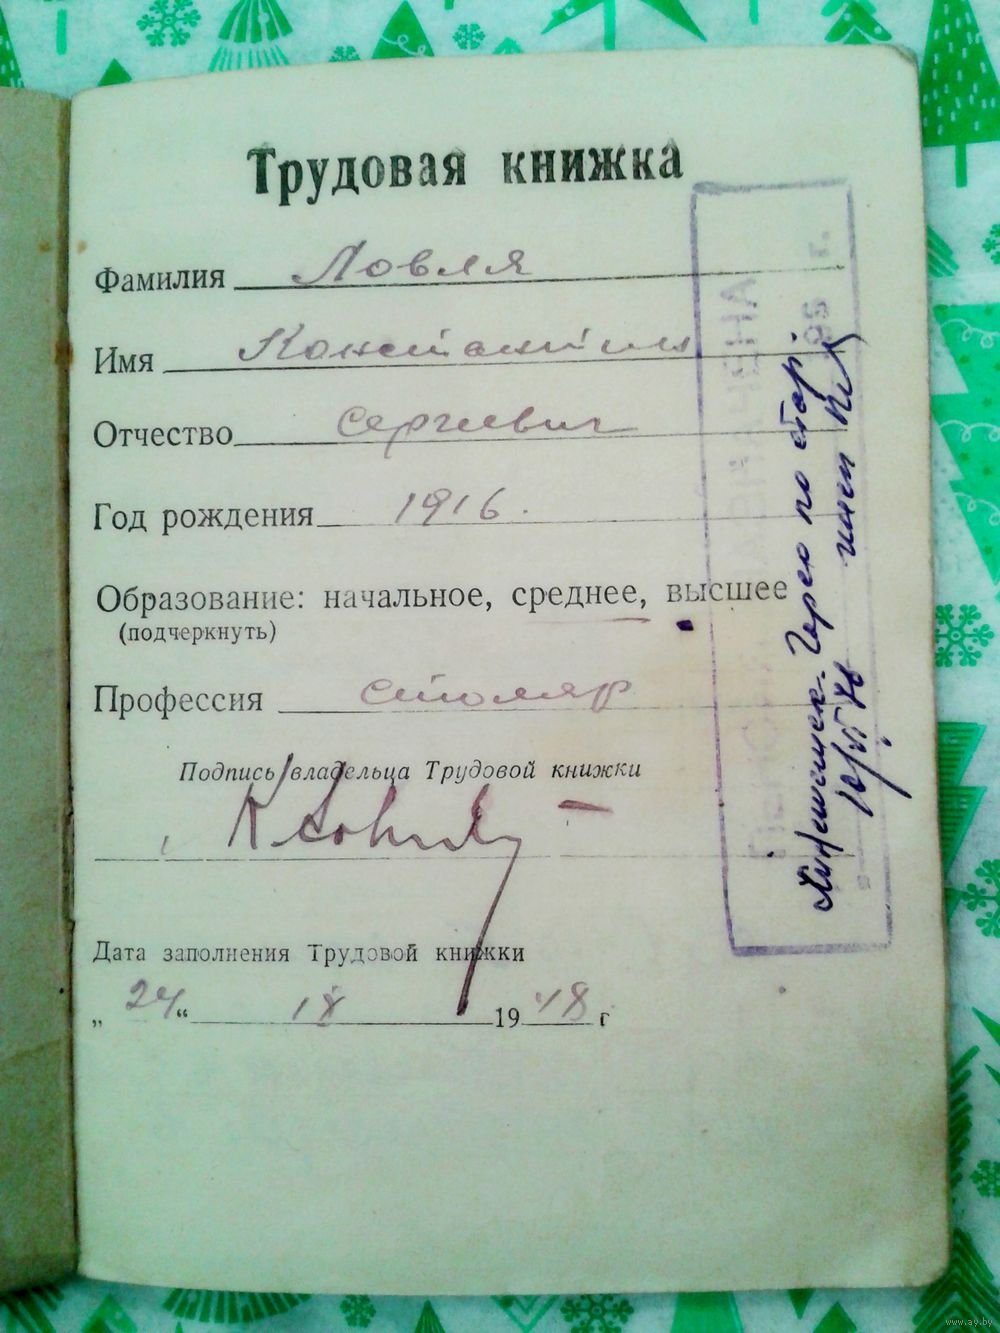 Трудовая книжка
Фамилия Ловля
Имя Константин
Отчество Сергеевич
Год рождения 1916.
Образование: начальное, среднее, высшее
(подчеркнуть)
Профессия столяр
Подпись владельца Трудовой книжки
Дата заполнения Трудовой книжки
„24“ IX 1948 г
ПЕНСИЯ НАЗНАЧЕНА
по стар.
www.ay.by